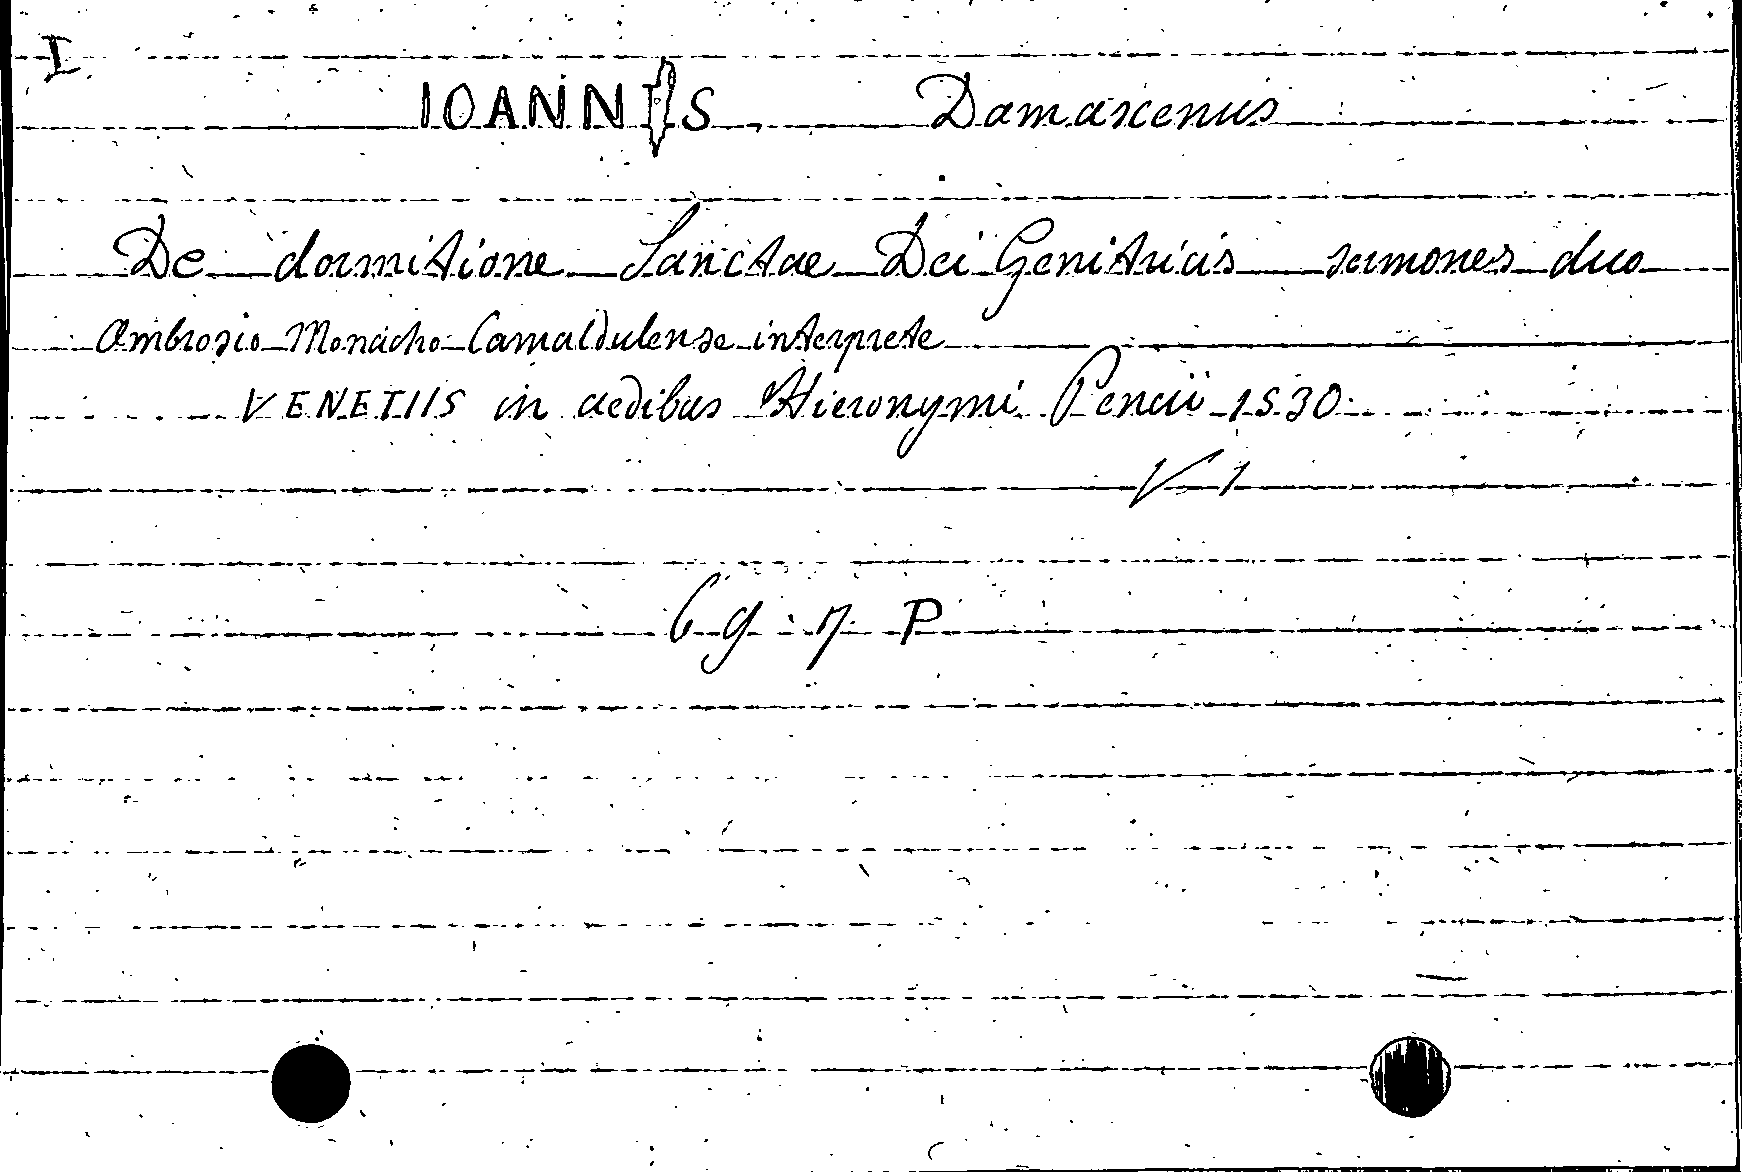 I
IOANNIS Damascenus
De dormitione Sanctae Dei Genitricis sermones duo
Ambrosio Monacho Camaldulense interprete
VENETIIS in aedibus Hieronymi Pencii 1530
V 1
69 7 P